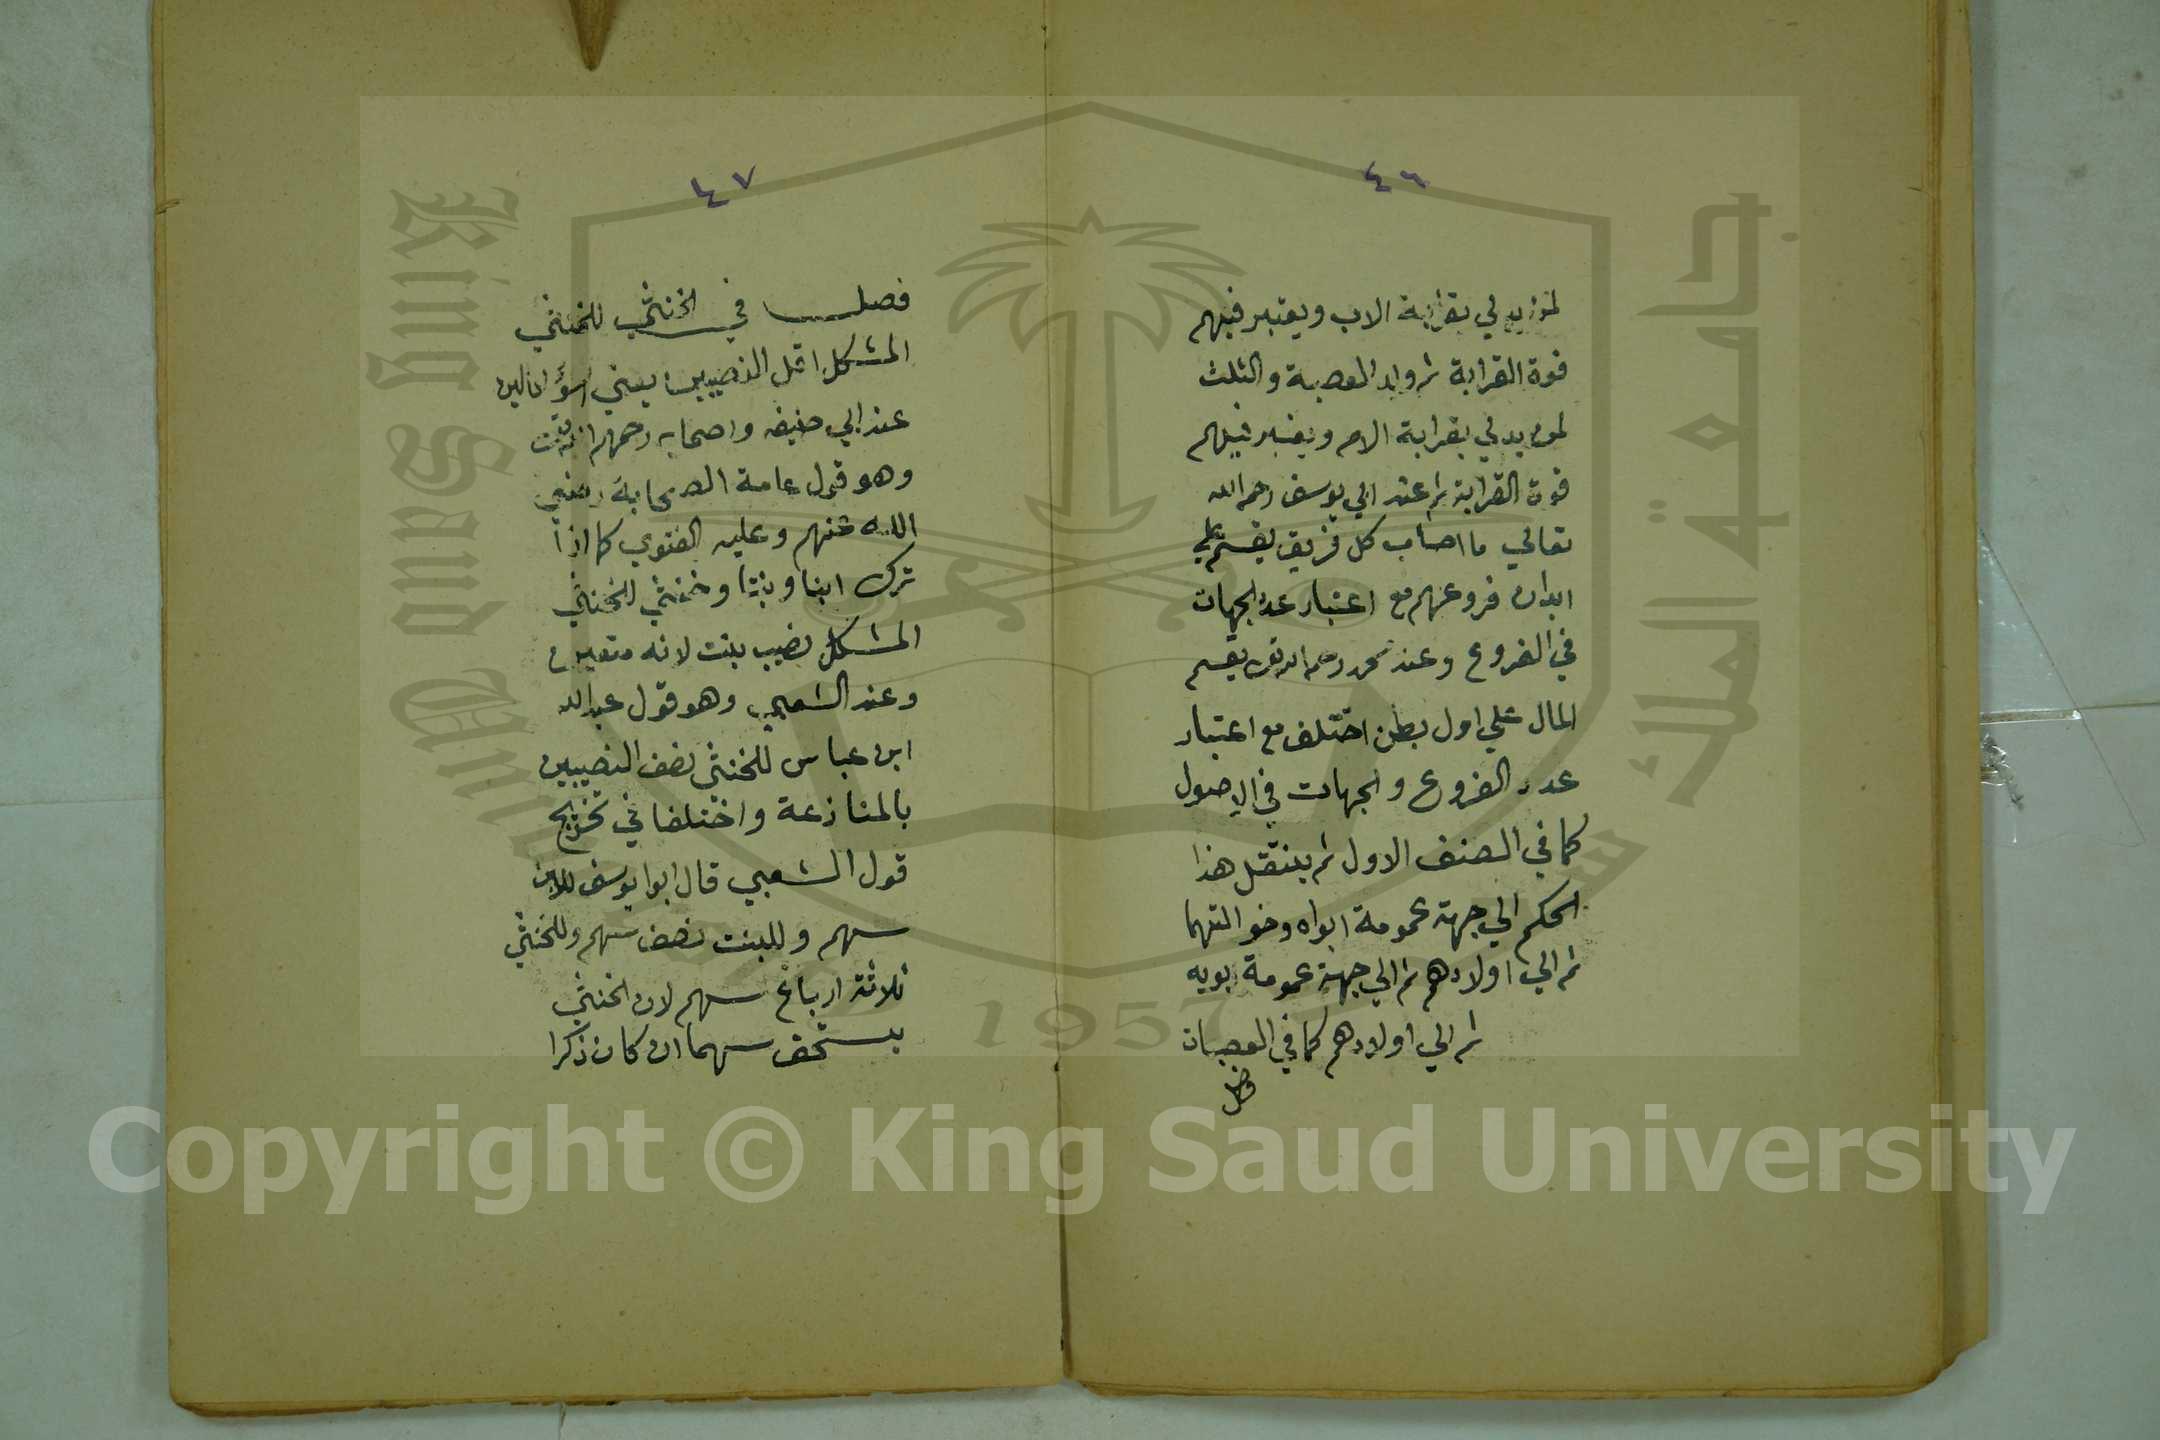 ٤٦
لمن يدلي بقرابة الاب ويعتبر فيهم
قوة القرابة ثم ولد العصبة والثلث
لمن يدلي بقرابة الام ويعتبر فيهم
قوة القرابة ثم عند ابي يوسف رحمه الله
تعالي ما اصاب كل فريق يقسم علي
ابدان فروعهم مع اعتبار عدد الجهات
في الفروع وعند محمد رحمه الله يقسم
المال علي اول بطن اختلف مع اعتبار
عدد الفروع والجهات في الاصول
كما في الصنف الاول ثم ينتقل هذا
الحكم الي جهة عمومة ابواه وخوالتهما
ثم الي اولادهم ثم الي جهة عمومة ابويه
ثم الي اولادهم كما في العصبات
فصل
٤٧
فصل في الخنثي للخنثي
المشكل اقل النصيبين يعني اسوأ الحالين
عند ابي حنيفه واصحابه رحمهم الله
وهو قول عامة الصحابة رضي
الله عنهم وعليه الفتوي كما اذا
ترك ابنا وبنتا وخنثي للخنثي
المشكل نصيب بنت لانه متعين
وعند الشعبي وهو قول عبد الله
ابن عباس للخنثي نصف النصيبين
بالمنازعة واختلفا في تخريج
قول الشعبي قال ابوا يوسف للابن
سهم وللبنت نصف سهم وللخنثي
ثلاثة ارباع سهم لان الخنثي
يستحق سهما ان كان ذكرا
جامعة الملك سعود
King Saud University
1957
Copyright © King Saud University